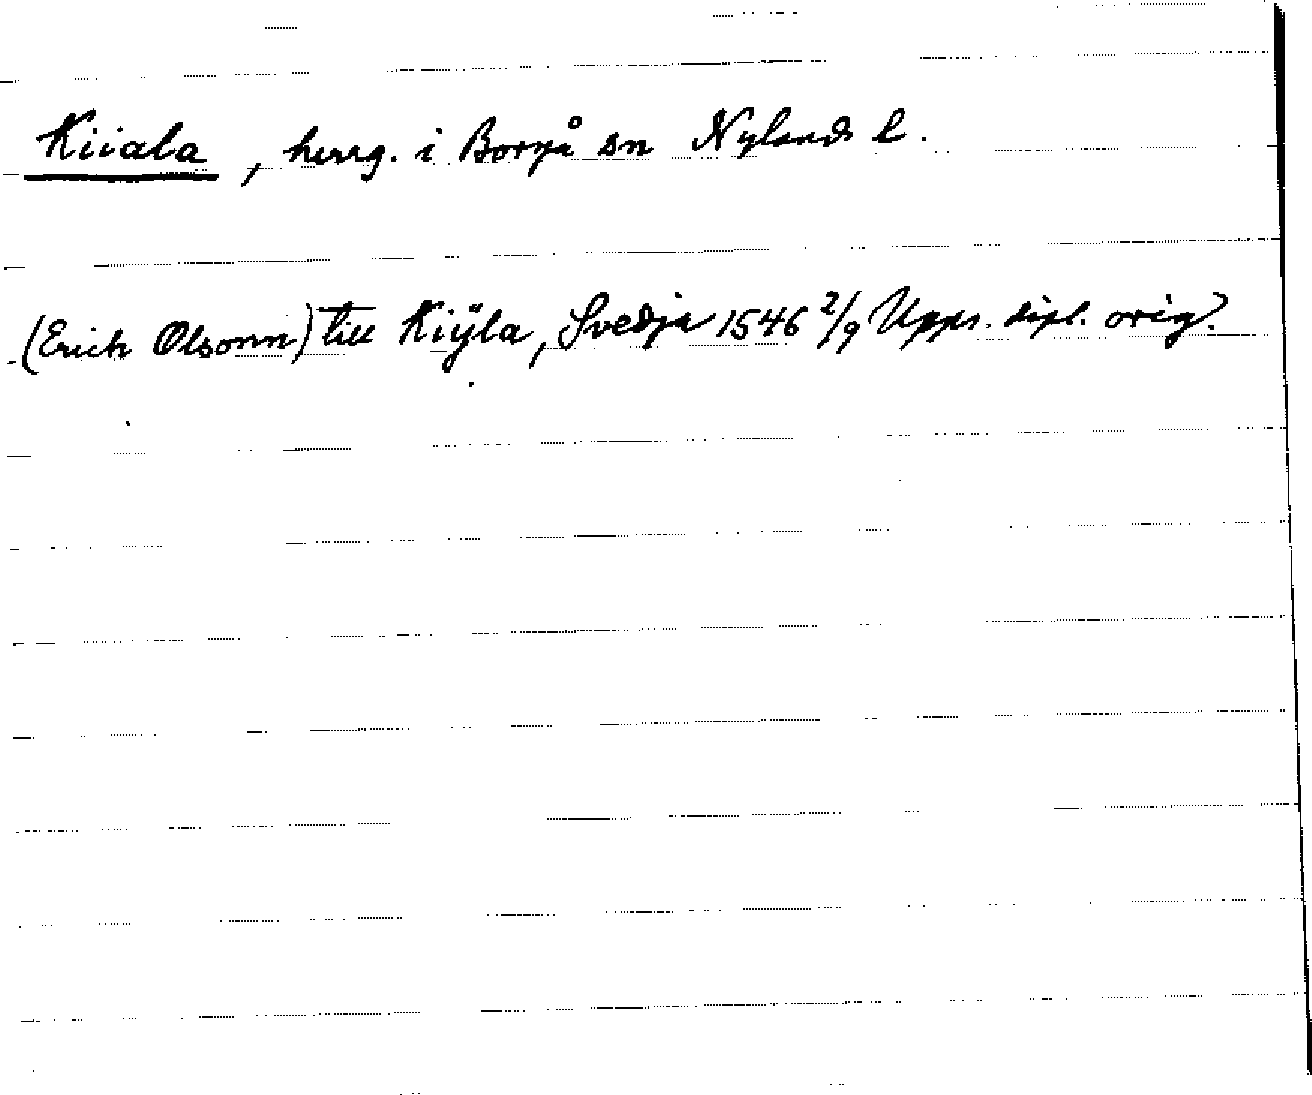 Kiiala, herrg. i Borgå sn Nylands l.
(Erich Olsonn) till Kiÿla, Svedja 1546 2/9 Upps. dipl. orig.